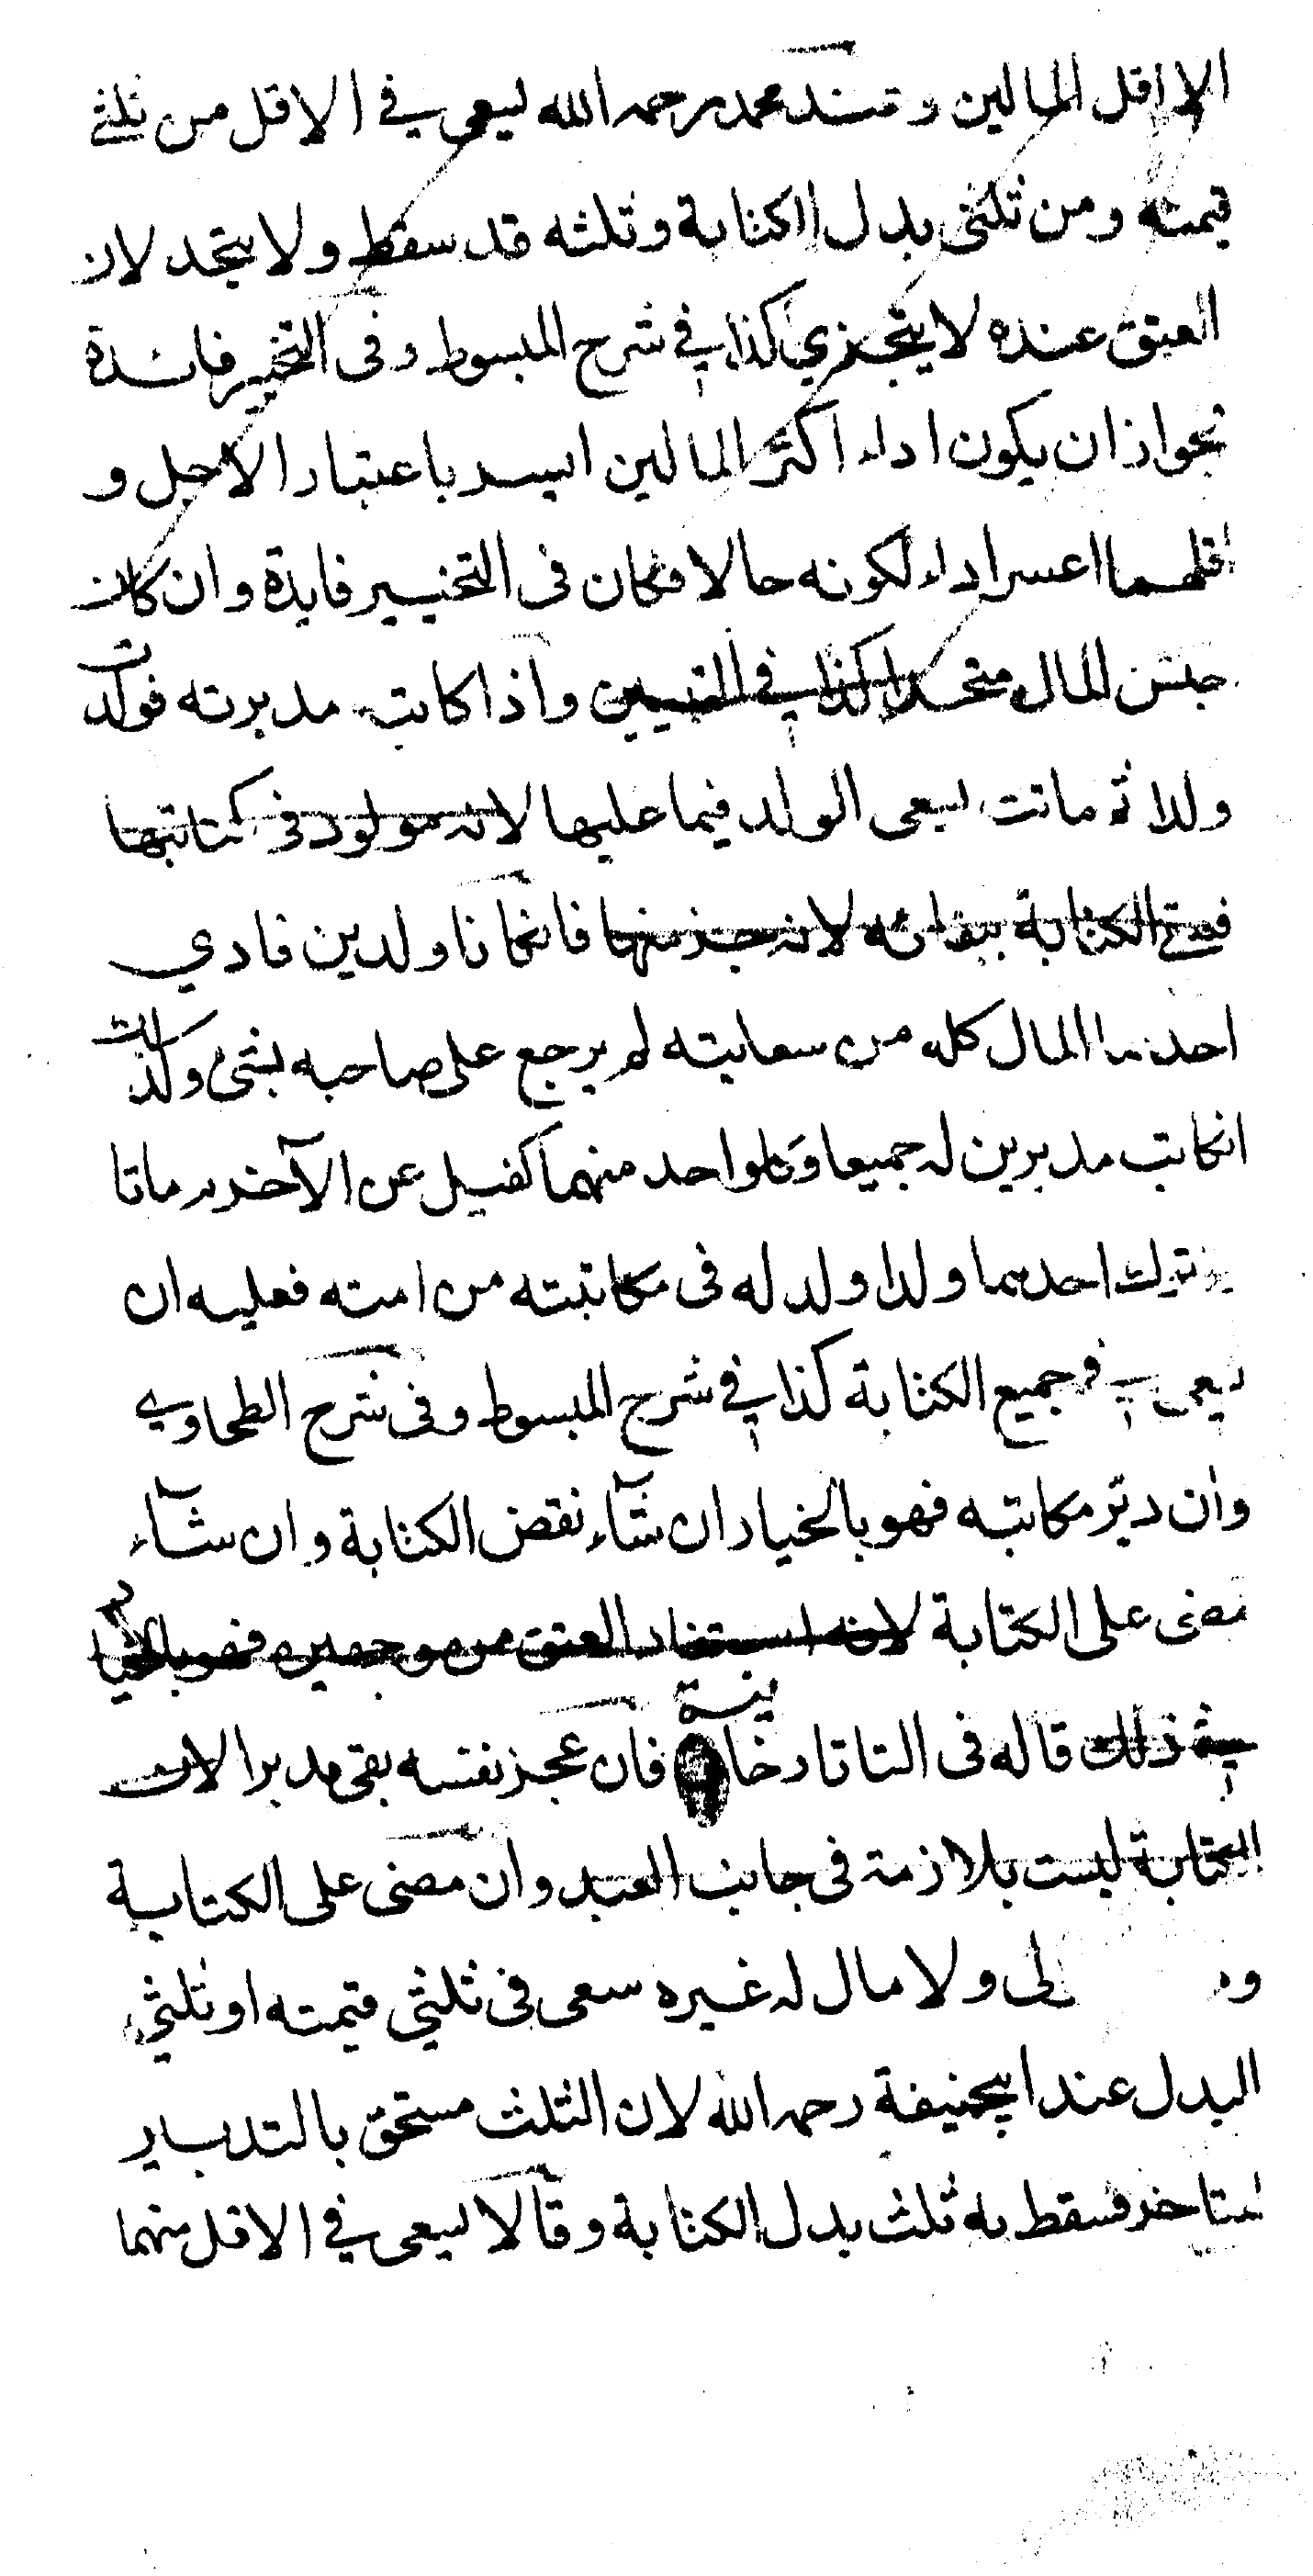 الا اقل المالين وعند محمد رحمه الله ليعى في الاقل من ثلثي
قيمته ومن ثلثى بدل الكتابة وثلثه قد سقط ولا يتجد لان
العتق عنده لا يتجزي كذا في شرح المبسوط وفى التخيير فائدة
لجواز ان يكون اداء اكثر المالين ايسر باعتبار الاجل و
اقلهما اعسر اداء لكونه حالا فكان فى التخيير فايدة وان كان
جنس المال متحدا كذا في التبيين واذا كاتب مدبرته فولدت
ولدا ثم ماتت يسعى الولد فيما عليها لانه مولود فى كتابتها
فبقي الكتابة ببقائه لانه جزء منها فانكانا ولدين فادي
احدهما المال كله من سعايته لم يرجع على صاحبه بشئ وكذلك
انكاتب مدبرين له جميعا وكلواحد منهما كفيل عن الآخر ثم ماتا
وترك احدهما ولدا ولد له فى مكاتبته من امته فعليه ان
يسعى في جميع الكتابة كذا في شرح المبسوط وفى شرح الطحاوي
وان دبّر مكاتبه فهو بالخيار ان شآء نقض الكتابة وان شآء
مضى على الكتابة لانه استفاد العتق من وجهين فهو بالخيار
في ذلك قاله فى التاتارخانية فان عجز نفسه بقى مدبرا لان
الكتابة ليست بلازمة فى جانب العبد وان مضى على الكتابة
لى ولا مال له غيره سعى فى ثلثي قيمته او ثلثي
البدل عند ابيحنيفة رحمه الله لان الثلث مستحق بالتدبير
المتاخر فسقط به ثلث بدل الكتابة وقالا يسعى في الاقل منهما